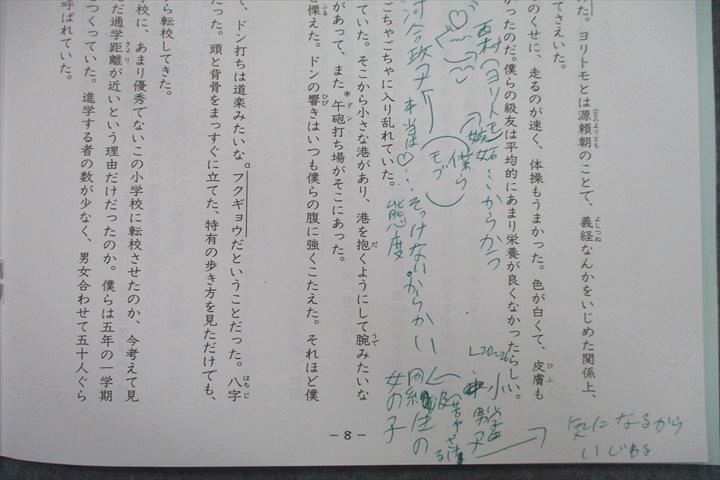 た。ヨリトモとは源頼朝のことで、義経なんかをいじめた関係上、
てさえいた。
のくせに、走るのが速く、体操もうまかった。色が白くて、皮膚も
かったのだ。僕らの級友は平均的にあまり栄養が良くなかったらしい。
ごちゃごちゃに入り乱れていた。
ていた。そこから小さな港があり、港を抱くようにして腕みたいな
があって、また午砲打ち場がそこにあった。
を慄えた。ドンの響きはいつも僕らの腹に強くこたえた。それほど僕
、ドン打ちは道楽みたいな。フクギョウだということだった。八字
だった。頭と背骨をまっすぐに立てた、特有の歩き方を見ただけでも、
ら転校してきた。
校に、あまり優秀でないこの小学校に転校させたのか、今考えて見
だ通学距離が近いという理由だけだったのか。僕らは五年の一学期
つくっていた。進学する者の数が少なく、男女合わせて五十人ぐら
呼ばれていた。
西村(ヨリトモ)
嫉妬…からかう
僕ら
モブ
河合政子
本当は♡…そっけない。からかい
態度
L20~26
小学
男子
同級生の
女の子
気になるから
いじめる
－8－